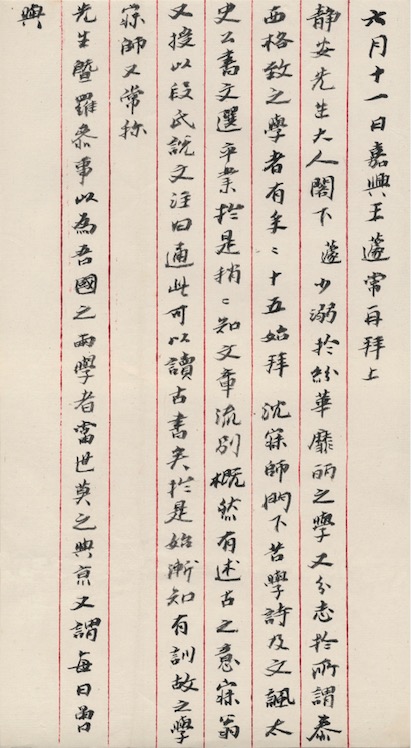 六月十一日嘉興王蘧常再拜上
静安先生大人閣下 蘧少溺於紛華靡丽之學又分志於所謂泰
西格致之學者有年〻十五始拜 沈寐師門下苦學詩及文諷太
史公書文選卒業於是稍〻知文章流别概然有述古之意寐翁
又授以段氏說文注曰通此可以讀古書矣於是始漸知有訓故之學
寐師又常称
先生曁羅叅事以為吾國之兩學者當世莫之與京又謂每日曾
與